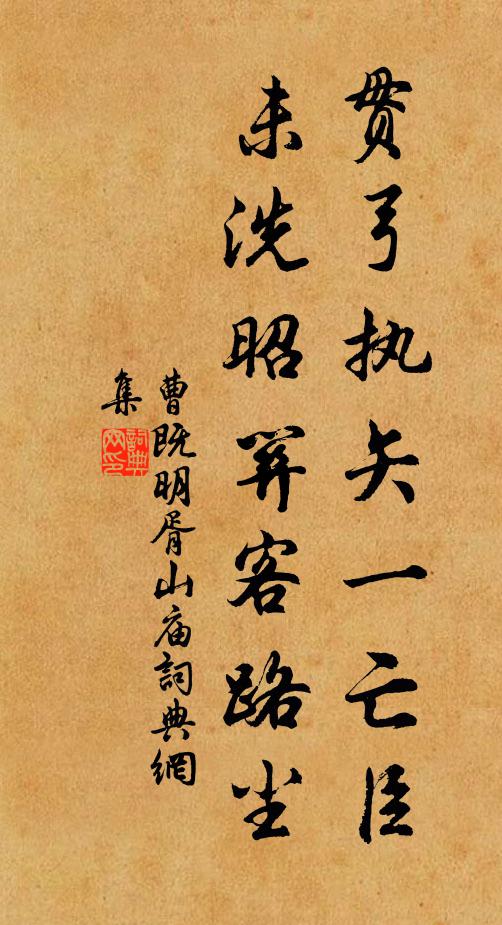 贯弓执矢一亡臣
未洗昭关客路尘
曹既明胥山庙詞典網
集
詞典
网印